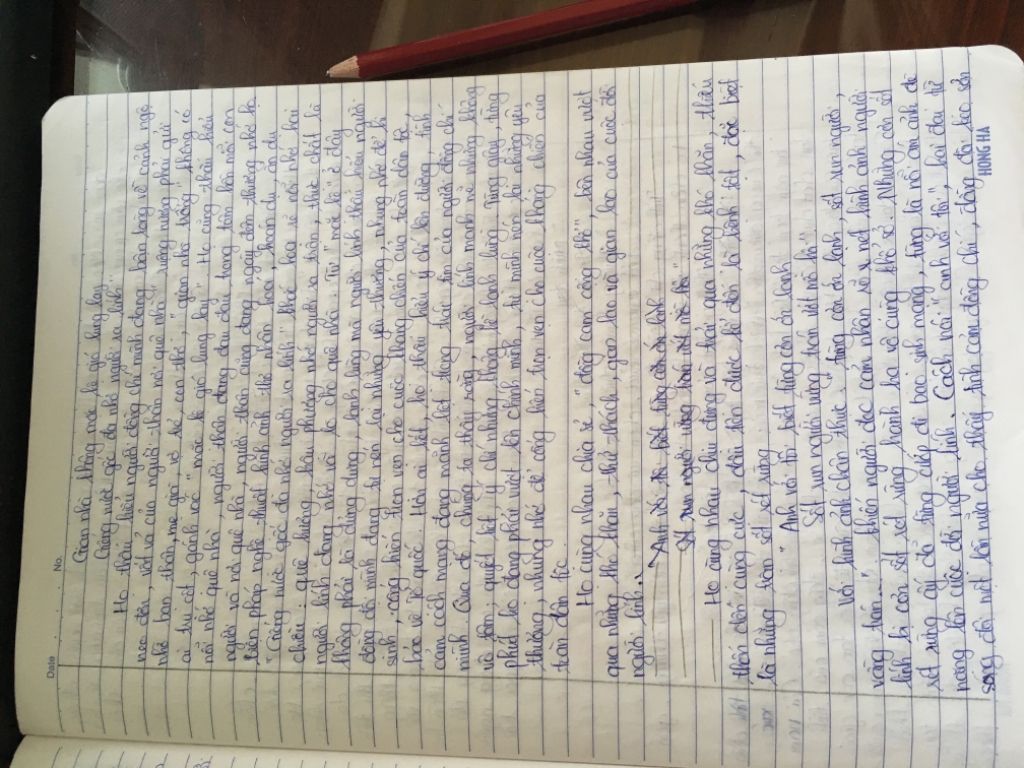 Date No
Gian nhà không mặc kệ gió lung lay
Giếng nước gốc đa nhớ người ra lính
Họ thấu hiểu người đồng chí mình đang băn khoăn về cảnh ngộ
neo đơn, vất vả của người thân nơi quê nhà, ruộng nương phải gửi
nhờ bạn thân, mẹ già vợ trẻ con thơ, "gian nhà trống" không có
ai tu sửa, gánh vác "mặc kệ gió lung lay". Họ cùng thấu hiểu
nỗi nhớ quê nhà, người thân đang đau đáu trong tâm hồn mỗi con
người và nơi quê nhà, người thân cũng đang ngày đêm thương nhớ họ
biện pháp nghệ thuật hình ảnh thơ nhân hoá, hoán dụ, ẩn dụ
"Giếng nước gốc đa nhớ người ra lính" thế hoá ra nỗi nhớ hai
chiều: quê hương, hậu phương nhớ người ra trận, thực chất là
người lính đang nhớ và lo cho quê nhà. Từ "mặc kệ" ở đây
không phải là dửng dưng, lạnh lùng mà người lính thấu hiểu người
đồng đội mình đang tự nén lại những gì thương, nhung nhớ để hi
sinh, cống hiến trọn vẹn cho cuộc kháng chiến của toàn dân tộc
bảo vệ Tổ quốc. Hơn ai hết, họ thấu hiểu ý chí lên đường, tình
cảm cách mạng đang mãnh liệt trong trái tim của người đồng chí
mình. Qua đó, chúng ta thấy rằng, người lính mạnh mẽ nhưng không
vô tâm, quyết liệt ý chí nhưng không hề lạnh lùng. Từng giây, từng
phút họ đang phải vượt lên chính mình, tự mình nén lại những yêu
thương, nhung nhớ để cống hiến trọn vẹn cho cuộc kháng chiến của
toàn dân tộc
Họ cùng nhau chia sẻ, "đồng cam cộng khổ", bên nhau vượt
qua những khó khăn, thử thách, gian lao và gian lao của cuộc đời
người lính.
Sốt run người vừng trán ướt mồ hôi
Họ cùng nhau chịu đựng và trải qua những khó khăn, thiếu
thốn đến cùng cực, đầu tiên được kể đến là bệnh tật, đặc biệt
là những trận sốt rét rừng
"Anh với tôi biết từng cơn ớn lạnh
Sốt run người vừng trán ướt mồ hôi"
Với hình ảnh chân thực "từng cơn ớn lạnh, sốt run người,
vừng trán..." khiến người đọc cảm nhận rõ nét hình ảnh người
lính bị cơn sốt rét rừng hành hạ vô cùng khổ sở. Những cơn sốt
rét rừng ấy đã từng cướp đi bao sinh mạng, từng là nỗi ám ảnh đè
nặng lên cuộc đời người lính. Cách nói "anh với tôi", hai đại từ
sóng đôi một lần nữa cho thấy tình cảm đồng chí, đồng đội keo sơn
HONG HA